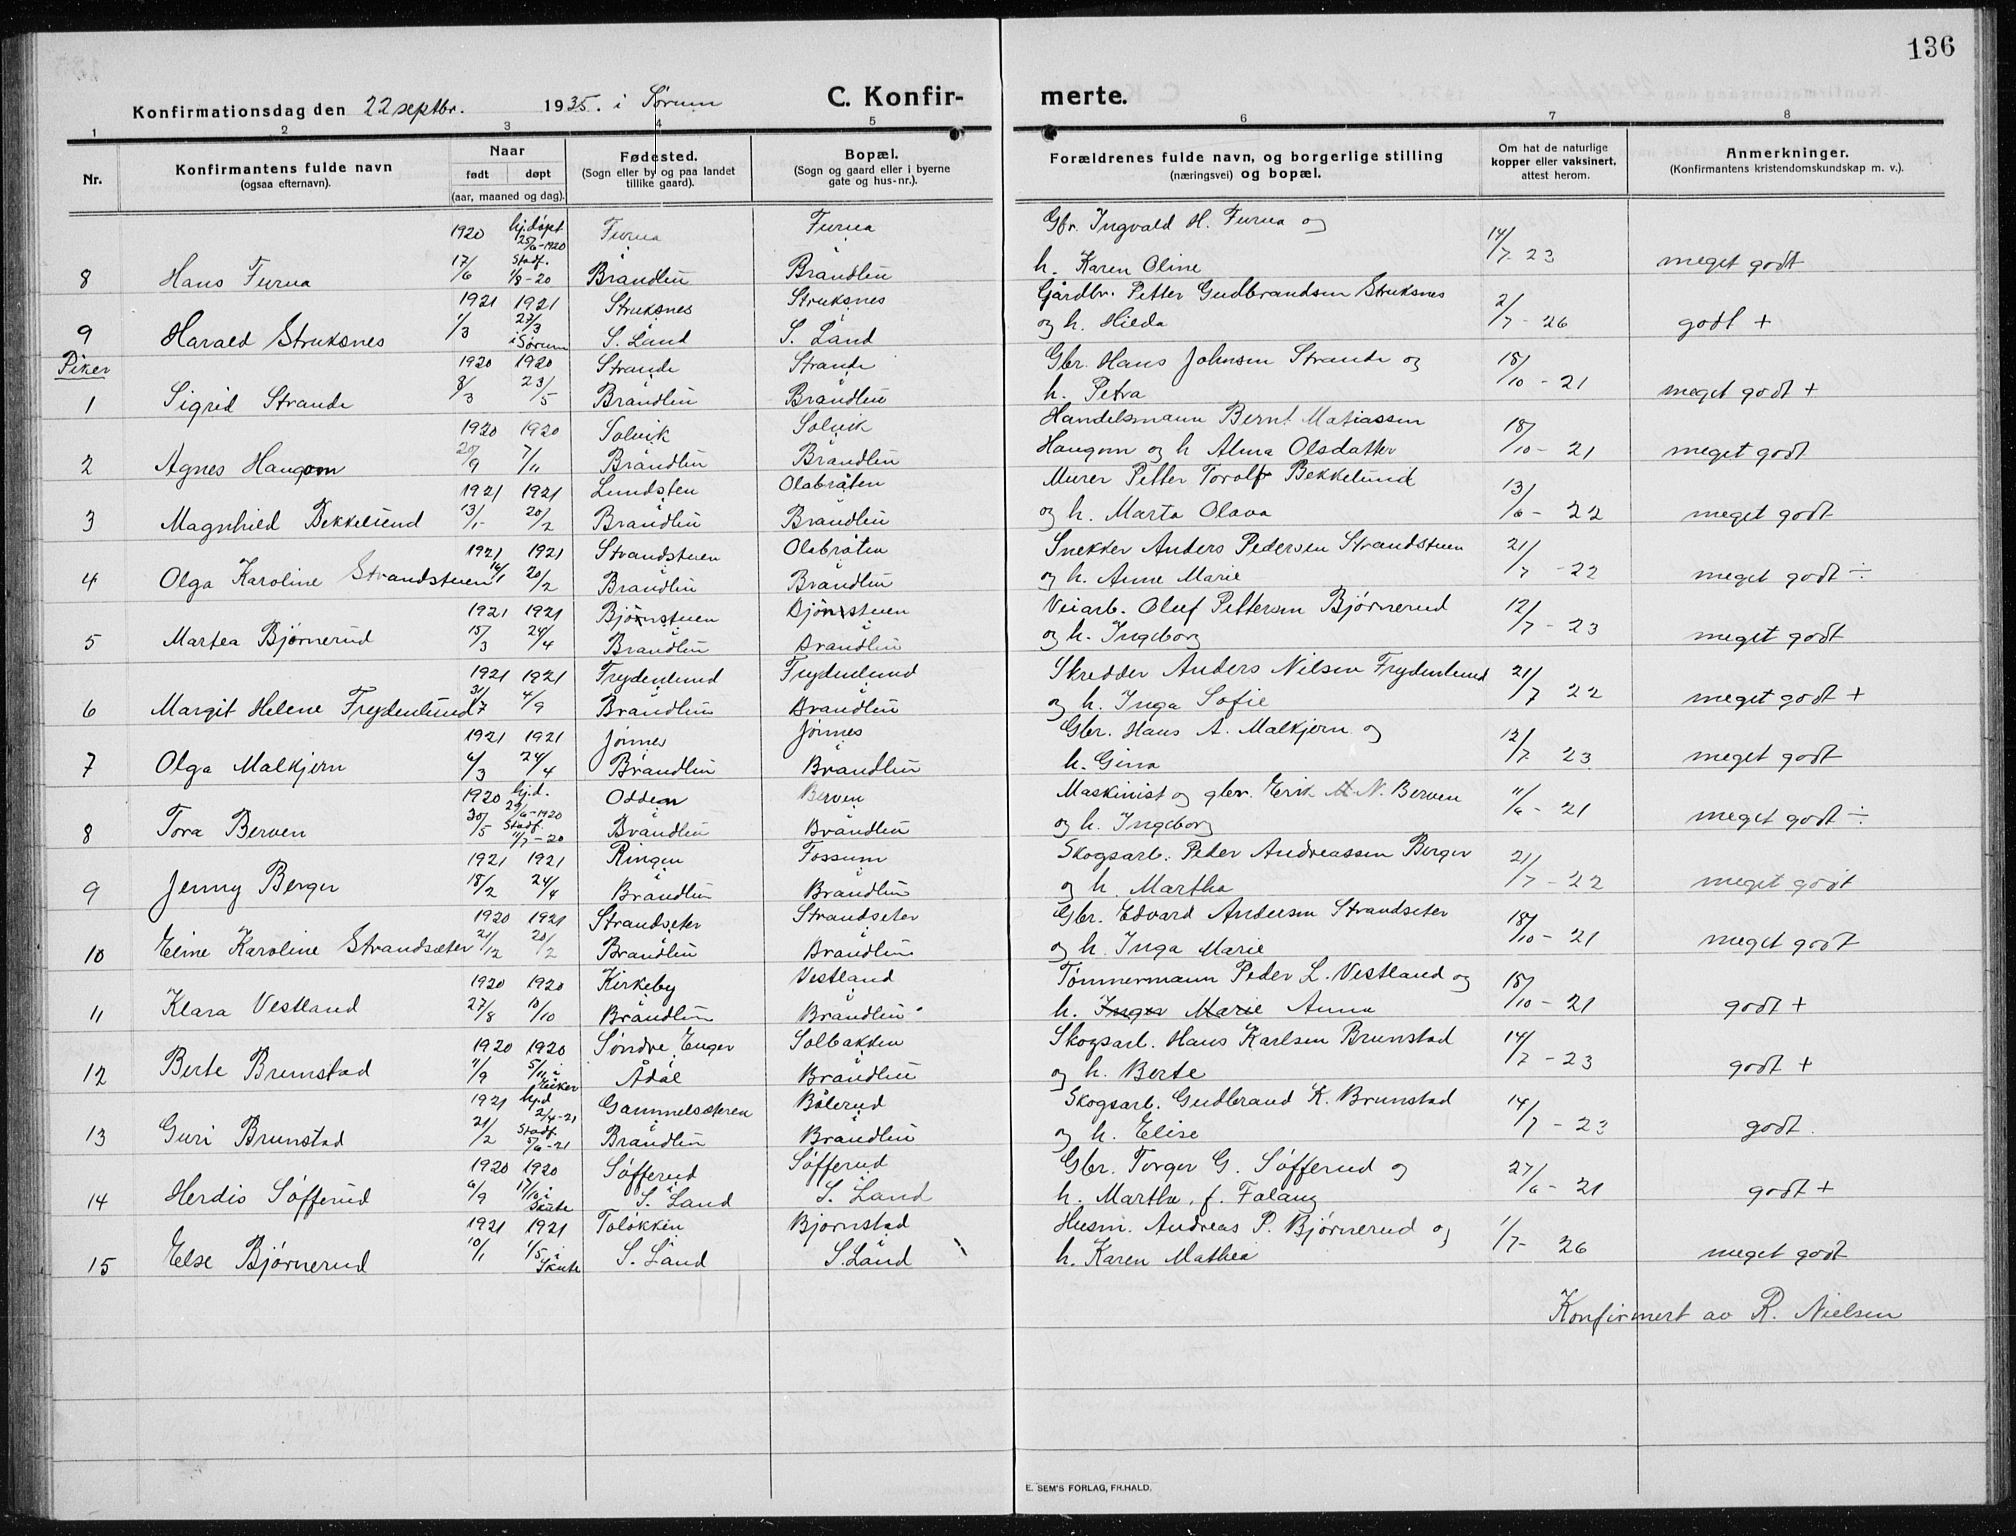 136
Konfirmationsdag den 22 septbr. 1935. i Sørum
C. Konfir- merte.
1 2 3 4 5 6 7 8
Nr.
Konfirmantens fulde navn
(ogsaa efternavn).
Naar
født døpt
(aar, maaned og dag).
Fødested.
(Sogn eller by og paa landet
tillike gaard).
Bopæl.
(Sogn og gaard eller i byerne
gate og hus-nr.).
Forældrenes fulde navn, og borgerlige stilling
(næringsvei) og bopæl.
Om hat de naturlige
kopper eller vaksinert,
attest herom.
Anmerkninger.
(Konfirmantens kristendomskundskap m. v.).
1920 hj.døpt 25/6-1920 Furua Furua Gbr. Ingvald H. Furua og
8 Hans Furua 17/6 Stadf. 1/8-20 Brandbu Brandbu h. Karen Oline 14/7 23 meget godt
1921 1921 Struksnes Struksnes Gårdbr. Petter Gudbrandsen Struksnes
9 Harald Struksnes 1/3 27/3 i Sørum S. Land S. Land og h. Hilda 2/7-26 godt +
Piker
1920 1920 Strande Strande Gbr. Hans Johnsen Strande og
1 Sigrid Strande 8/3 23/5 Brandbu Brandbu h. Petra 18/10-21 meget godt +
1920 1920 Solvik Solvik Handelsmann Bernt Matiassen
2 Agnes Haugom 20/9 7/11 Brandbu Brandbu Haugom og h Alma Olsdatter 18/10-21 meget godt
1921 1921 Lundsten Olabråten Murer Petter Torolf Bekkelund
3 Magnhild Bekkelund 13/1 20/2 Brandbu Brandbu og h. Marta Olava 13/6-22 meget godt
1921 1921 Strandstuen Olabråten Snekker Anders Pedersen Strandstuen
4 Olga Karoline Strandstuen 16/1 20/2 Brandbu Brandbu og h. Anne Marie 21/7-22 meget godt ÷
1921 1921 Bjørnstuen Bjørnstuen Veiarb. Oluf Pettersen Bjørnerud
5 Martea Bjørnerud 15/3 24/4 Brandbu Brandbu og h. Ingeborg 12/7-23 meget godt
1921 1921 Frydenlund Frydenlund Skredder Anders Nilsen Frydenlund
6 Margit Helene Frydenlund 31/7 4/9 Brandbu Brandbu og h. Inga Sofie 21/7 22 meget godt +
1921 1921 Jønnes Jønnes Gbr. Hans A. Malkjern og
7 Olga Malkjern 6/3 24/4 Brandbu Brandbu h. Gina 12/7 23 meget godt
1920 hj.d. 29/6-1920 Odden Berven Maskinist og gbr. Erik N. Berven
8 Tora Berven 30/5 Stadf. 11/7-20 Brandbu Brandbu og h. Ingeborg 11/6-21 meget godt ÷
1921 1921 Ringen Fossum Skogsarb. Peder Andreassen Berger
9 Jenny Berger 18/2 24/4 Brandbu Brandbu og h. Martha 21/7-22 meget godt
1920 1921 Strandseter Strandseter Gbr. Edvard Andersen Strandseter
10 Eline Karoline Strandsæter 21/12 20/2 Brandbu Brandbu og h. Inga Marie 18/10-21 meget godt
1920 1920 Kirkeby Vestland Tømmermann Peder L. Vestland og
11 Klara Vestland 27/8 10/10 Brandbu Brandbu h. Inger Marie Anna 18/10-21 godt +
1920 1920 Søndre Enger Solbakken Skogsarb. Hans Karlsen Brunstad
12 Berte Brunstad 7/9 5/11 i Eiker Ådal Brandbu og h. Berte 14/7-23 godt +
1921 hj.d 2/4-21 Gammelsæteren Bålerud Skogsarb. Gudbrand K. Brunstad
13 Guri Brunstad 21/2 Stadf. 5/6-21 Brandbu Brandbu og h. Elise 14/7-23 godt.
1920 1920 Søfferud Søfferud Gbr. Torger G. Søfferud og
14 Herdis Søfferud 6/9 17/10 i Skute S. Land S. Land h. Martha, f. Falang 27/6-21 godt +
1921 1921 Toløkken Bjørnstad Husm. Andreas P. Bjørnerud og
15 Else Bjørnerud 10/1 1/5 i Skute S. Land S. Land h. Karen Mathea 1/7-26 meget godt
Konfirmert av R. Nielsen
E. SEM'S FORLAG, FR.HALD.